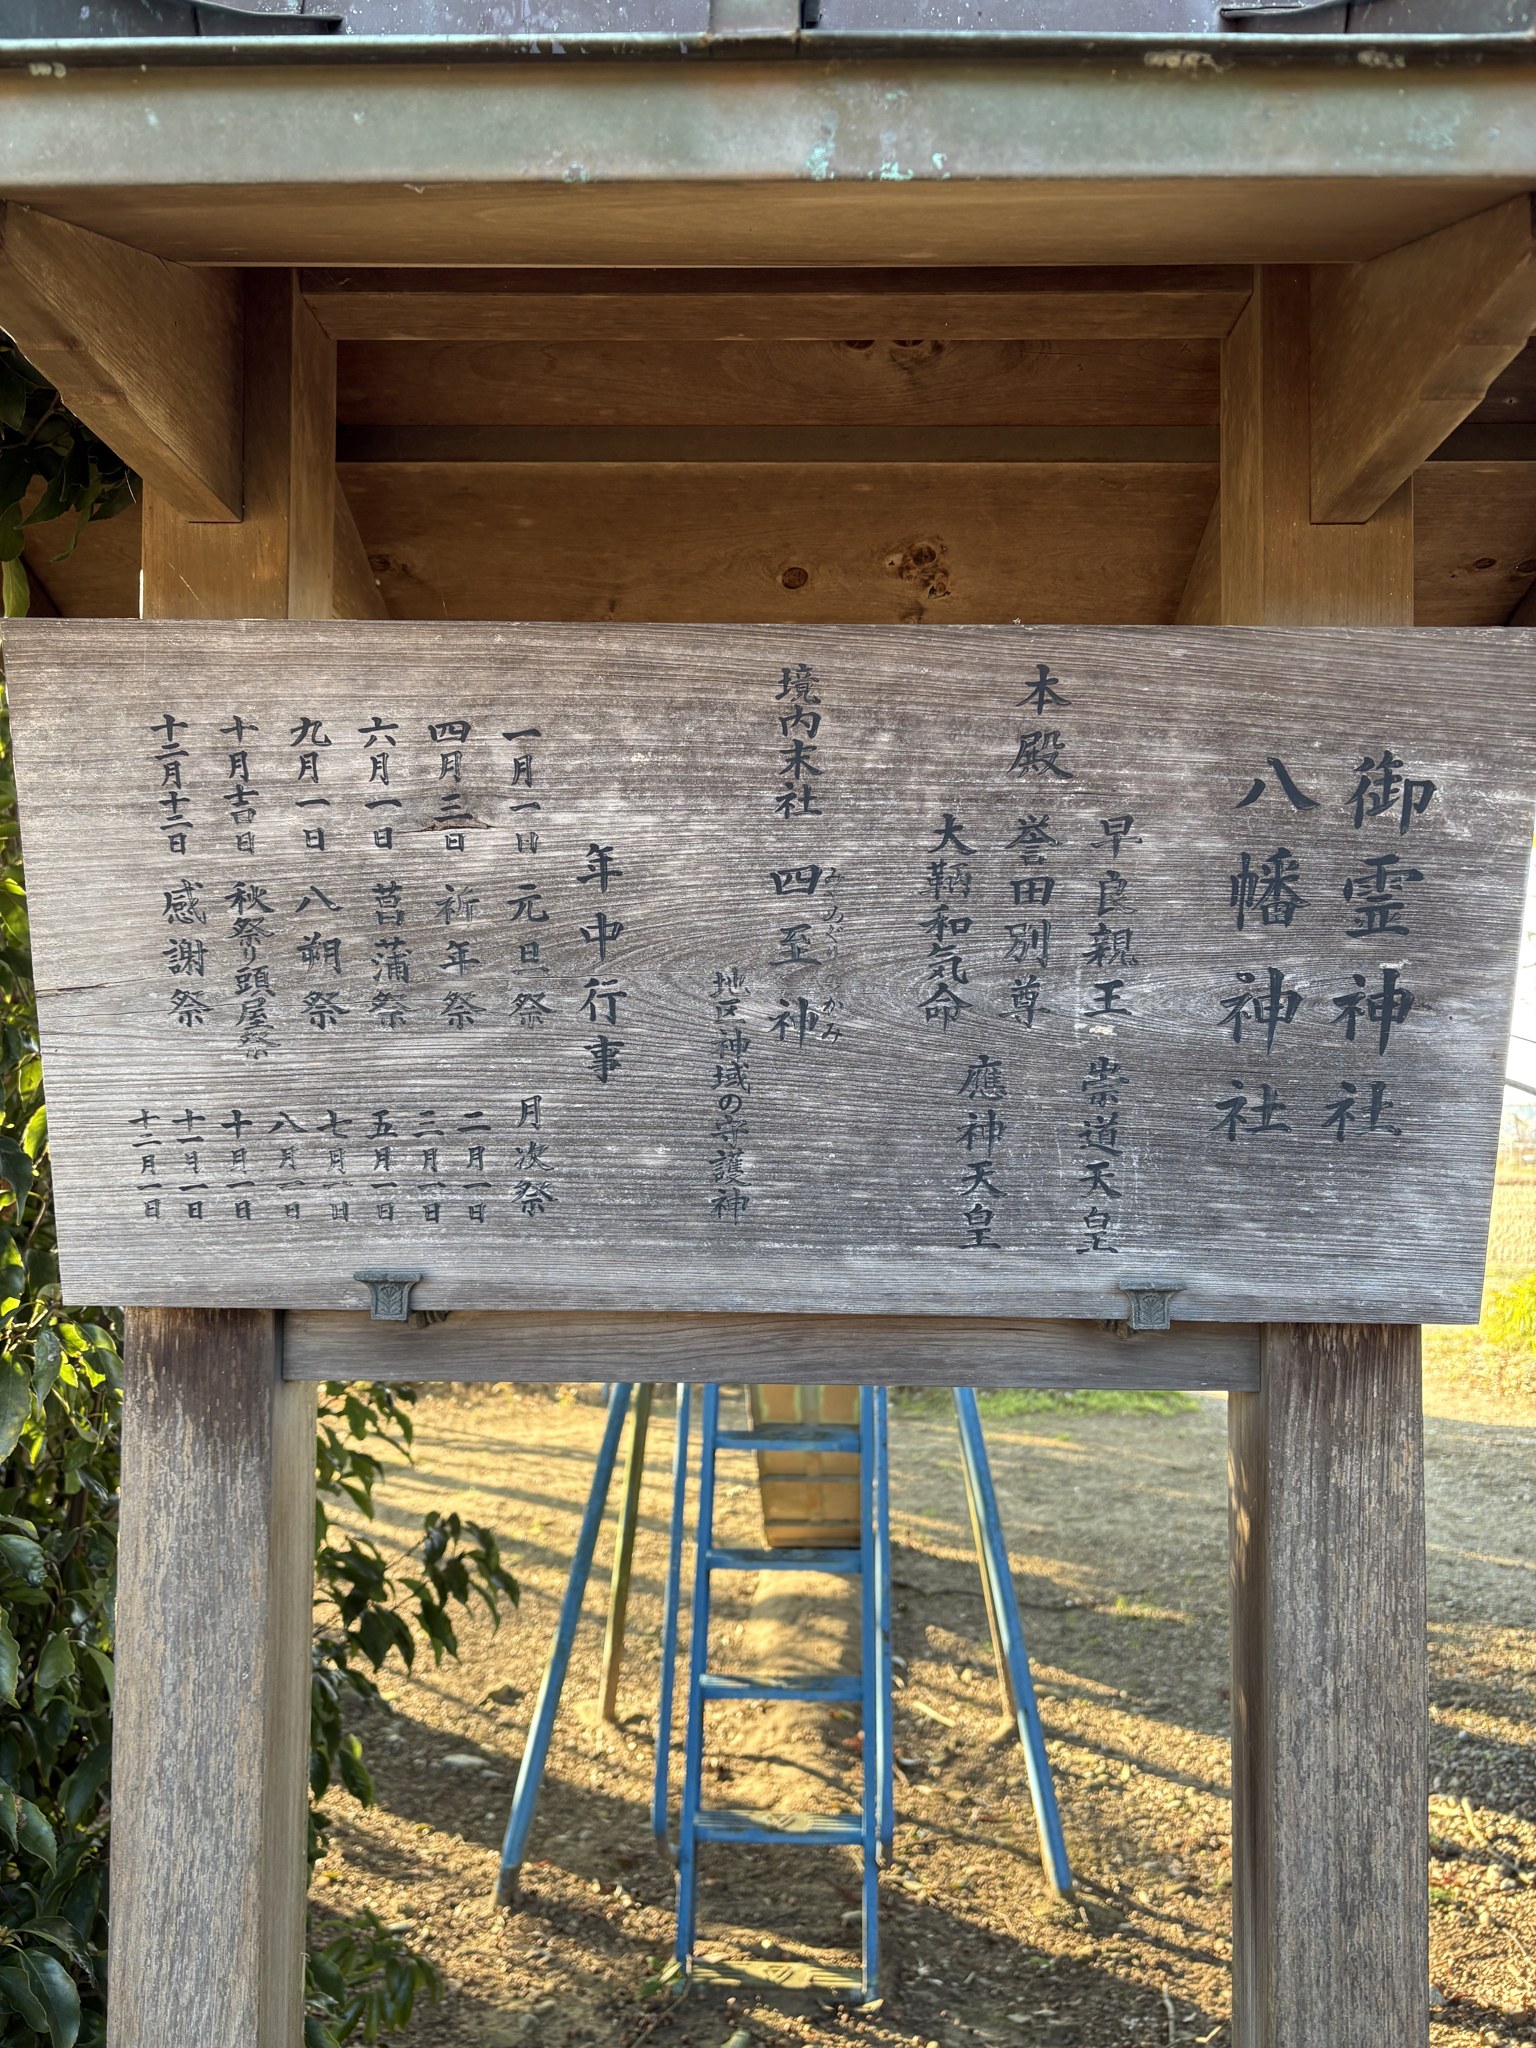 御霊神社
八幡神社
本殿
早良親王 崇道天皇
誉田別尊 應神天皇
大鞆和気命
境内末社 四至神
みやめぐりのかみ
地区神域の守護神
年中行事
一月一日 元旦祭
四月三日 祈年祭
六月一日 菖蒲祭
九月一日 八朔祭
十月 日 秋祭り頭屋祭
十二月十二日 感謝祭
月次祭
二月一日
三月一日
五月一日
七月一日
八月一日
十月一日
十一月一日
十二月一日